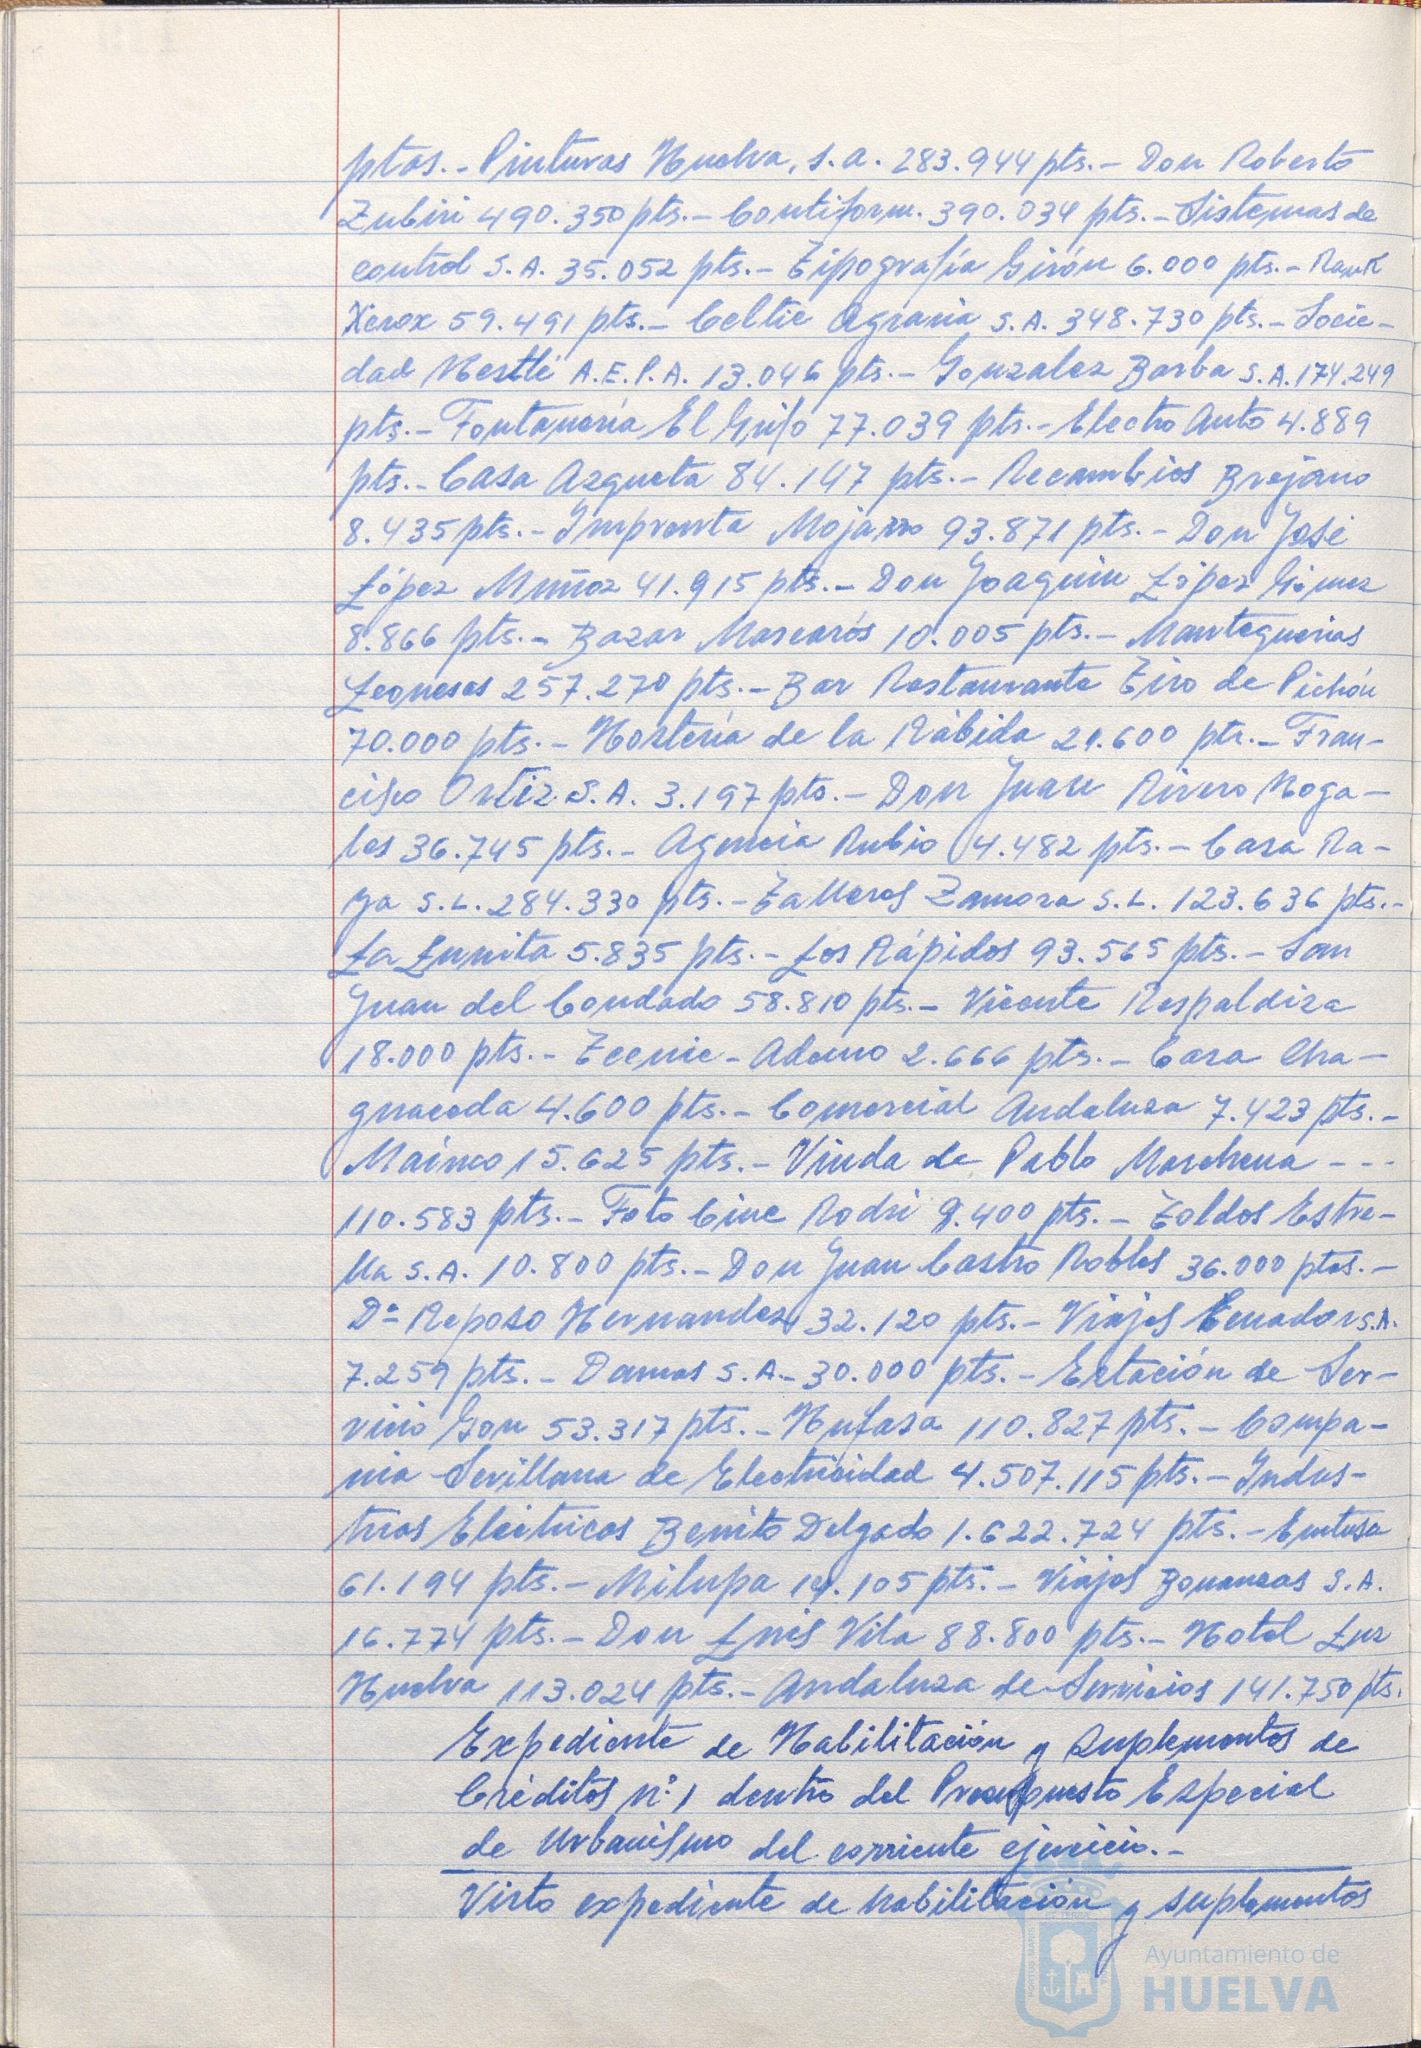 ptas.- Pinturas Huelva, S.A. 283.944 pts.- Don Roberto
Zubiri 490.350 pts.- Contiform. 390.034 pts.- Sistemas de
control S.A. 35.052 pts.- Tipografía Girón 6.000 pts.- Rank
Xerox 59.491 pts.- Celtic Agraria S.A. 348.730 pts.- Socie-
dad Nestlé A.E.P.A. 13.046 pts.- Gonzalez Barba S.A. 174.249
pts.- Fontanería El Grifo 77.039 pts.- Electro Auto 4.889
pts.- Casa Azqueta 84.147 pts.- Recambios Brejano
8.435 pts.- Imprenta Mojarro 93.871 pts.- Don José
López Muñoz 41.915 pts.- Don Joaquin López Gómez
8.866 pts.- Bazar Mascarós 10.005 pts.- Mantequerias
Leonesas 257.270 pts.- Bar Restaurante Tiro de Pichón
70.000 pts.- Hostería de la Rábida 21.600 pts.- Fran-
cisco Ortiz S.A. 3.197 pts.- Don Juan Rivero Noga-
les 36.745 pts.- Agencia Rubio 4.482 pts.- Casa Ra-
ya S.L. 284.330 pts.- Talleres Zamora S.L. 123.636 pts.-
La Lunita 5.835 pts.- Los Rápidos 93.565 pts.- San
Juan del Condado 58.810 pts.- Vicente Respaldiza
18.000 pts.- Tecnic-Ademo 2.666 pts.- Casa Cha-
guaceda 4.600 pts.- Comercial Andaluza 7.423 pts.-
15.625 pts.- Viuda de Pablo Marchena - - -
110.583 pts.- Foto Cine Rodri 9.400 pts.- Toldos Estre-
lla S.A. 10.800 pts.- Don Juan Castro Robles 36.000 ptas.-
Dª Reposo Hernandez 32.120 pts.- Viajes Ecuador S.A.
7.259 pts.- Damas S.A.- 30.000 pts.- Estación de Ser-
vicio Gon 53.317 pts.- Hufasa 110.827 pts.- Compa-
nia Sevillana de Electricidad 4.507.115 pts.- Indus-
trias Eléctricas Benito Delgado 1.622.724 pts.- Entursa
61.194 pts.- Milupa 14.105 pts.- Viajes Bonanzas S.A.
16.774 pts.- Don Luis Vila 88.800 pts.- Hotel Luz
Huelva 113.024 pts.- Andaluza de Servicios 141.750 pts.
Expediente de Habilitación y Suplementos de
Créditos nº 1 dentro del Presupuesto Especial
de Urbanismo del corriente ejercicio.-
Visto expediente de habilitación y suplementos
Ayuntamiento de
HUELVA